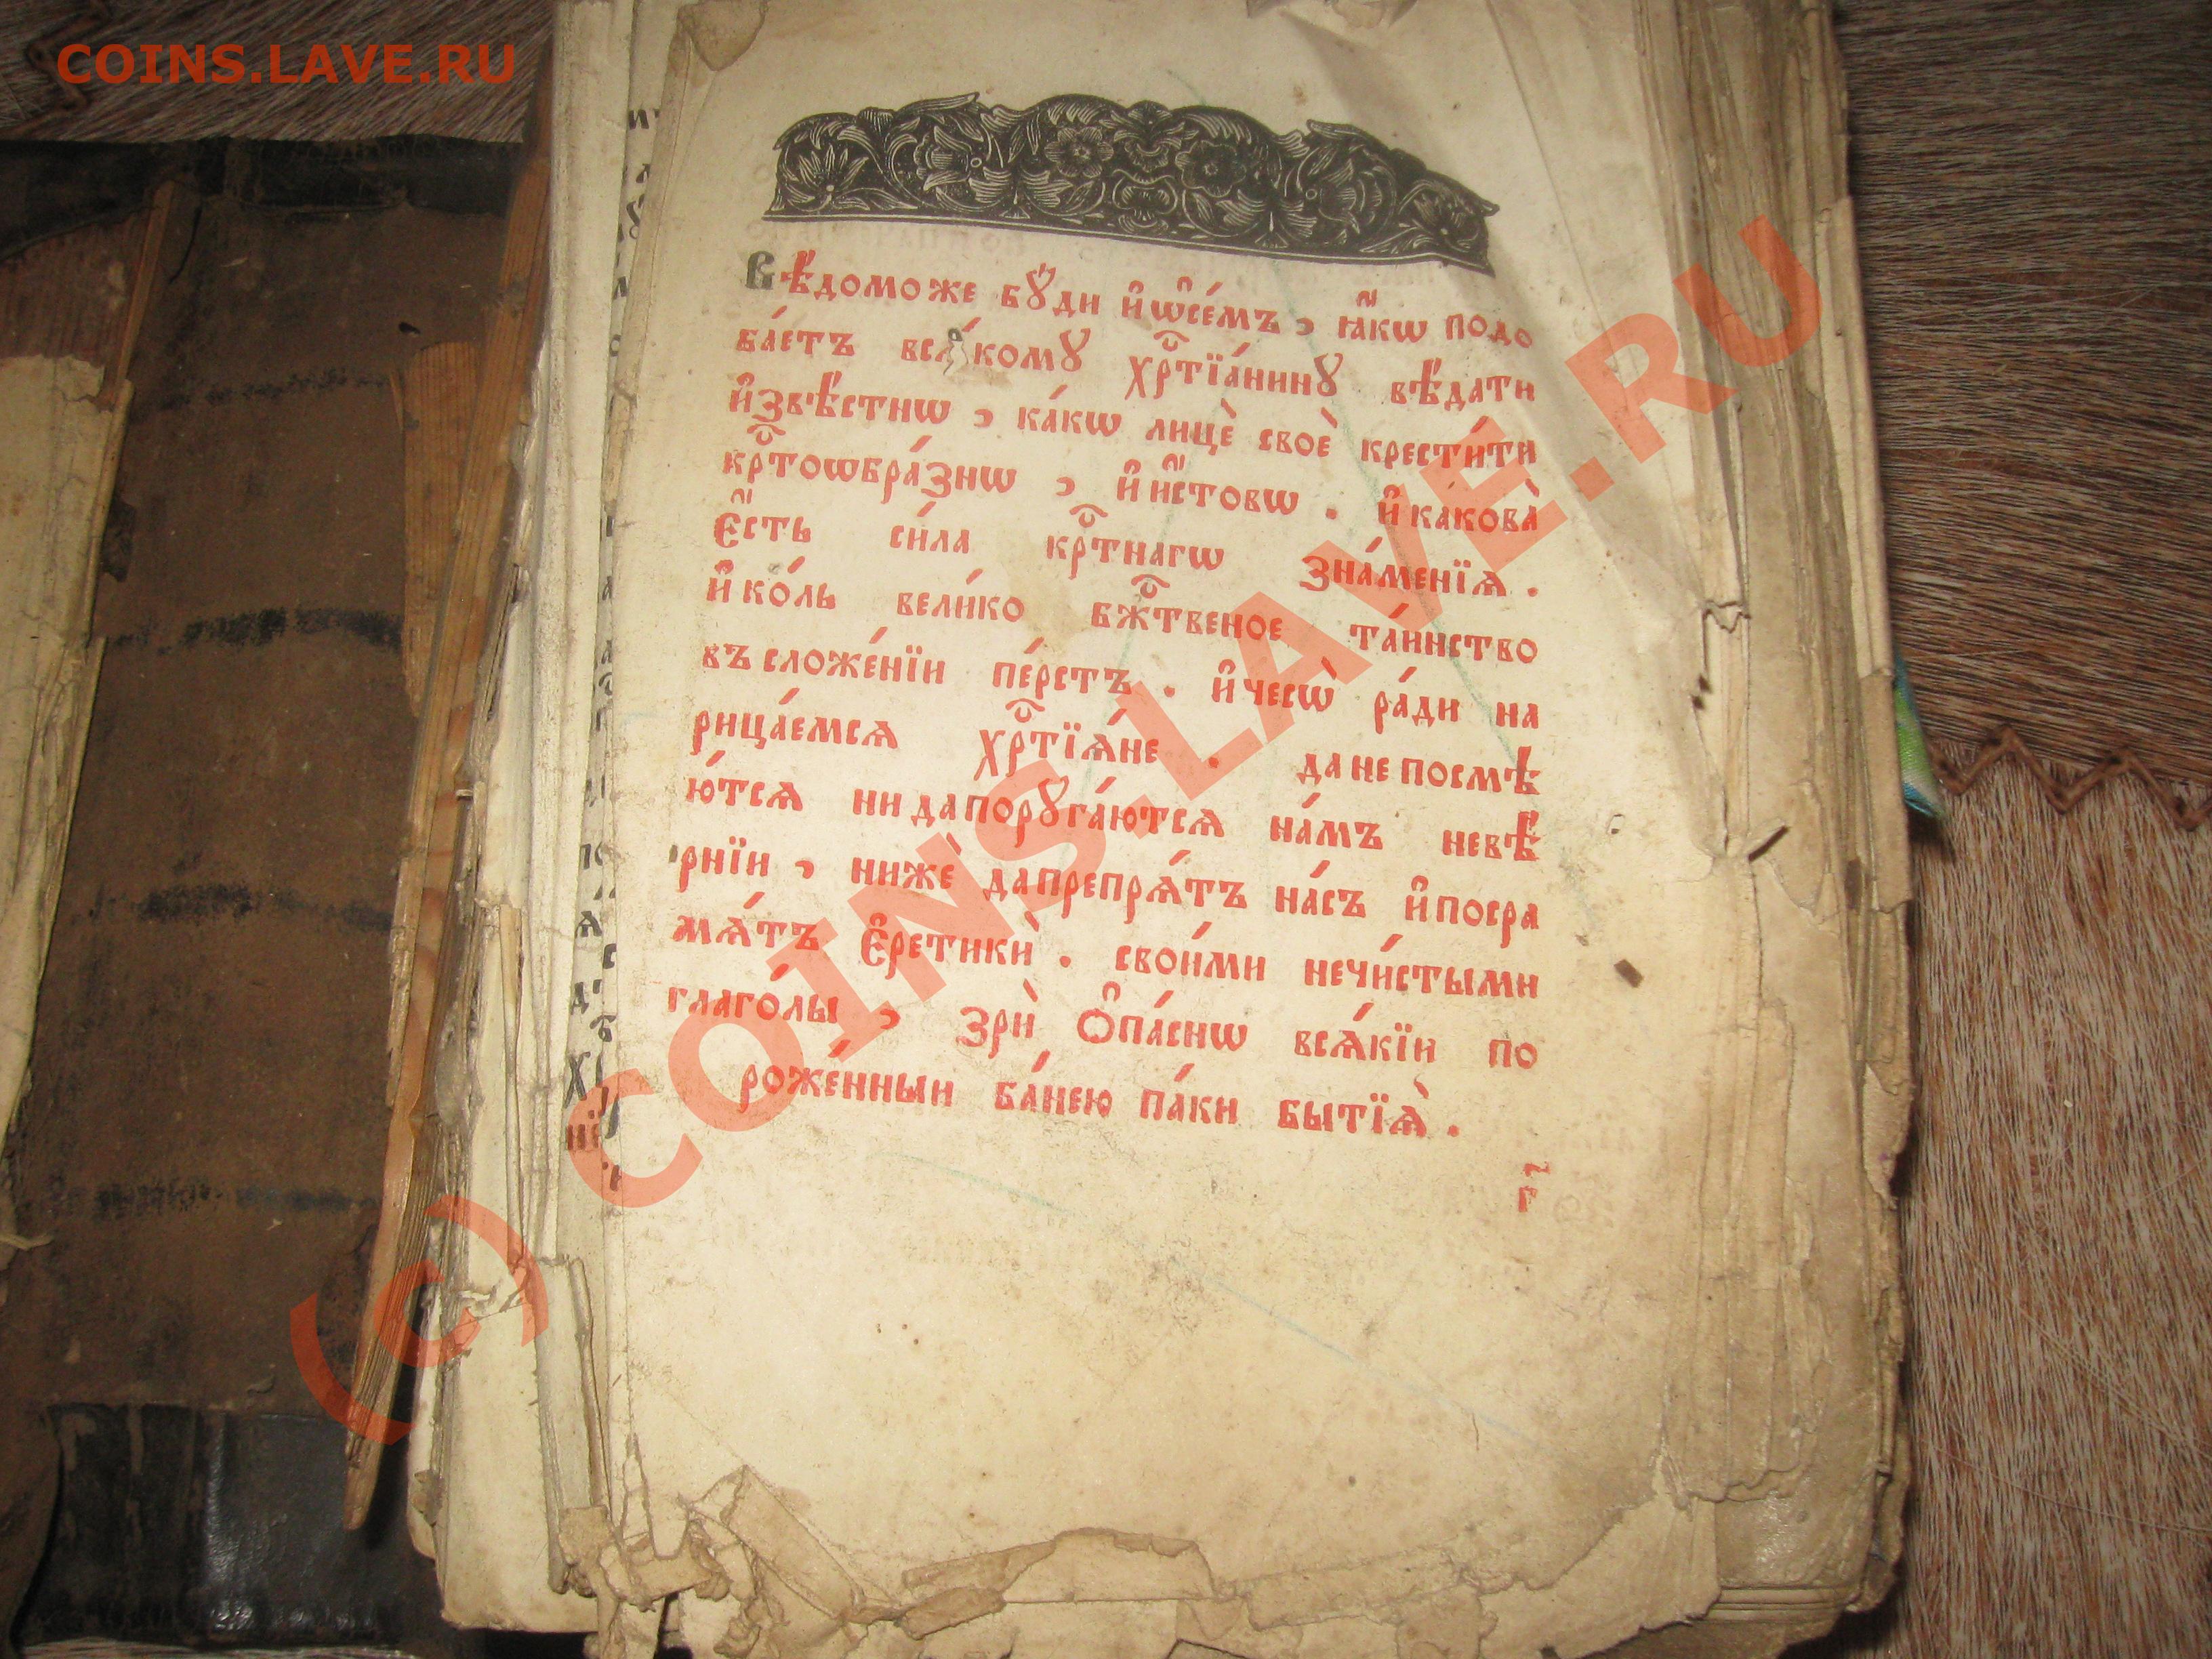 COINS.LAVE.RU
Вѣ́доможе бꙋ́ди и҆ѡ҆се́мъ , ꙗ҆́кѡ подо
ба́етъ всѧ́комꙋ хр҇тїа́нинꙋ вѣ́дати
и҆звѣ́стнѡ , ка́кѡ лицѐ своѐ крести́ти
кр҇тоѡбра́знѡ , и҆ и҆́стовѡ . и҆ какова̀
є҆́сть си́ла кр҇тнагѡ зна́менїѧ .
и҆ ко́ль вели́ко бж҇твеное та́инство
въ сложе́нїи пе́рстъ . и҆ чесѡ̀ ра́ди на
рица́емсѧ хр҇тїѧ́не . да не посмѣ
ю́тсѧ ни да порꙋга́ютсѧ на́мъ невѣ́
рнїи , нижѐ да препрѧ́тъ на́съ и҆ посра
мѧ́тъ є҆ретикѝ . свои́ми нечи́стыми
глаго́лы , зрѝ ѻ҆па́снѡ всѧ́кїи по
роже́нныи ба́нею па́ки бытїѧ̀ .
г҃
(c) COINS.LAVE.RU